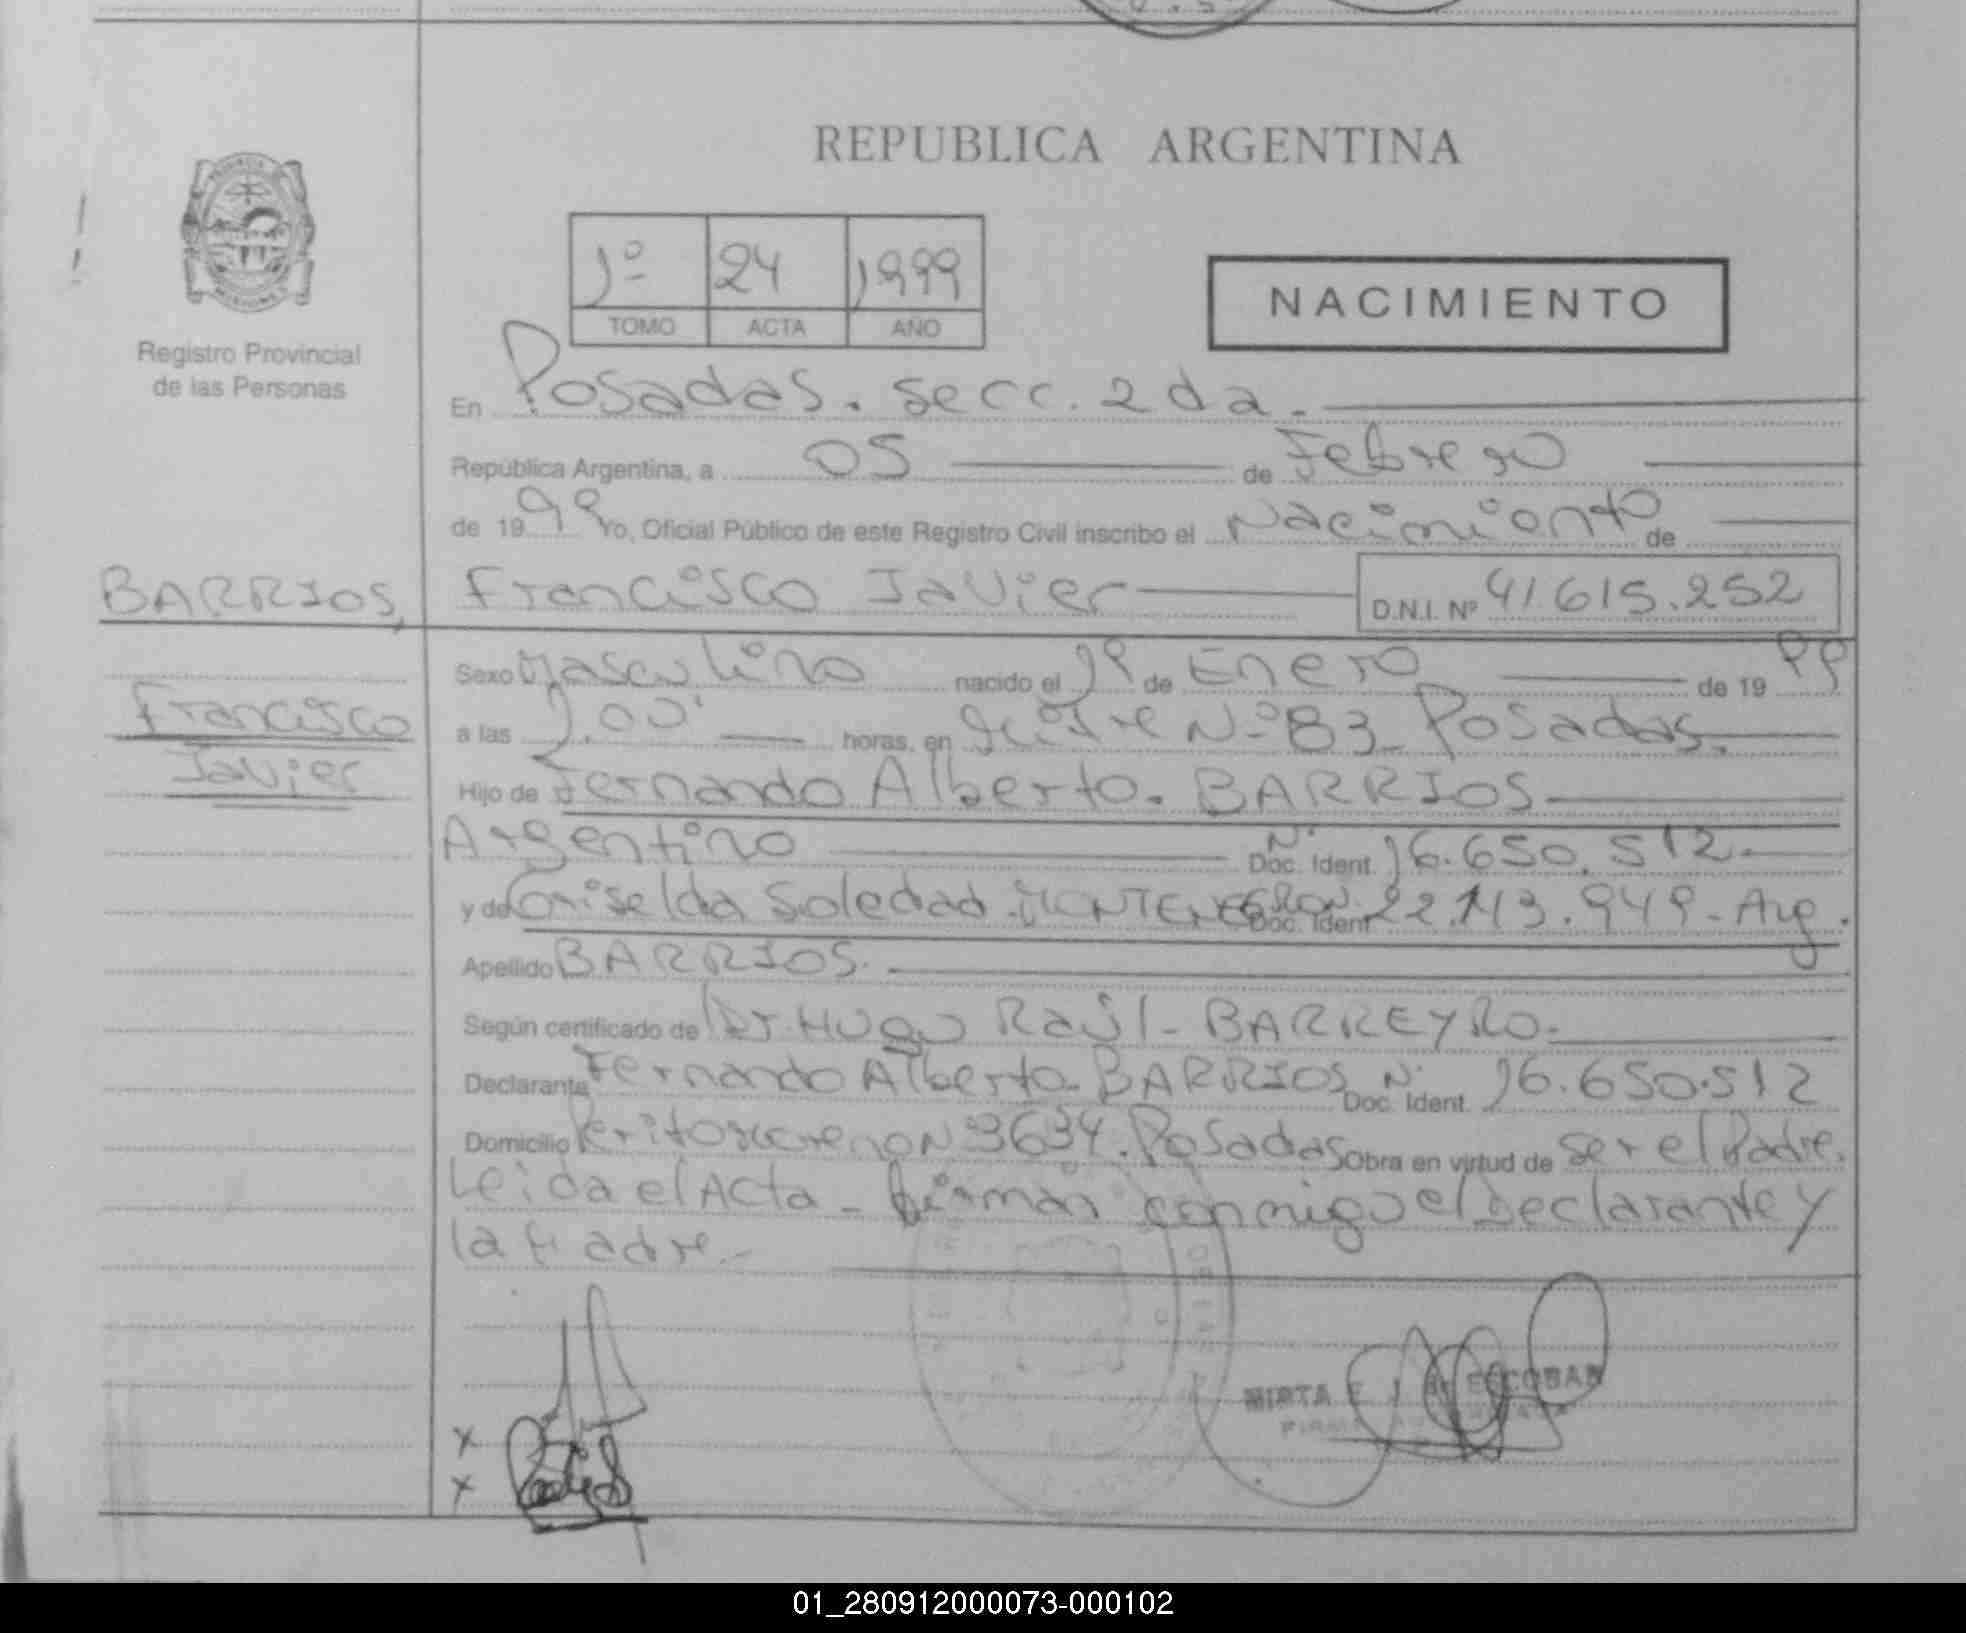 REPUBLICA ARGENTINA
1º 24 1999
TOMO ACTA AÑO
NACIMIENTO
Registro Provincial
de las Personas
En Posadas. secc. 2da.
República Argentina, a 05 de Febrero
de 1999 Yo, Oficial Público de este Registro Civil inscribo el Nacimiento de
BARRIOS, Francisco Javier D.N.I. Nº 41.615.252
Francisco
Javier
Sexo Masculino nacido el 19 de Enero de 1999
a las horas, en Nº 83 Posadas.
Hijo de Fernando Alberto. BARRIOS
Argentino Nº Doc. Ident. 16.650.512.
y de Griselda Soledad MONTENEGRO N. Doc. Ident. 22.113.949 - Arg.
Apellido BARRIOS.
Según certificado de Dr. Hugo Raúl - BARREYRO.
Declarante Fernando Alberto BARRIOS Nº Doc. Ident. 16.650.512
Domicilio Perito Moreno Nº 3634. Posadas Obra en virtud de ser el Padre.
Leida el Acta - firman conmigo el Declarante y
la Madre.-
MIRTA E. J. DE ESCOBAR
x
x
01_280912000073-000102